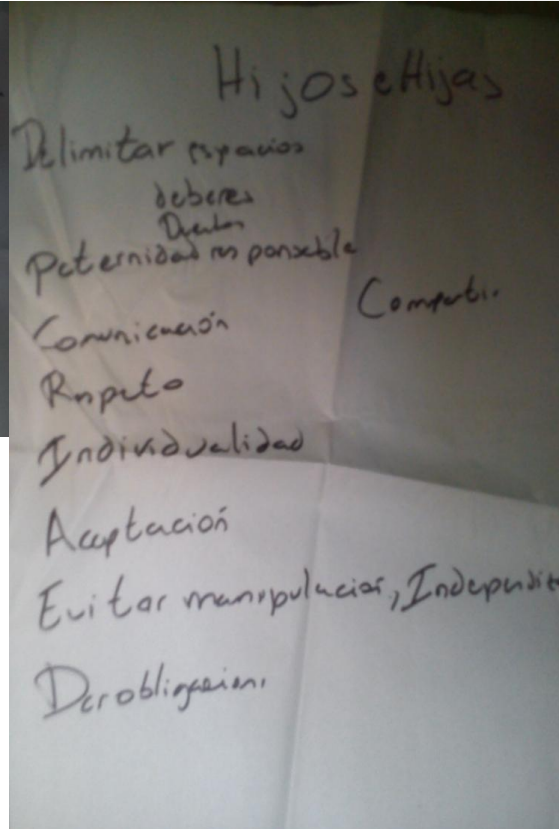 Hijos e Hijas
Delimitar espacios
deberes
Paternidad responsable
Compartir
Comunicación
Respeto
Individualidad
Aceptación
Evitar manipulación,
Dar obligacion.